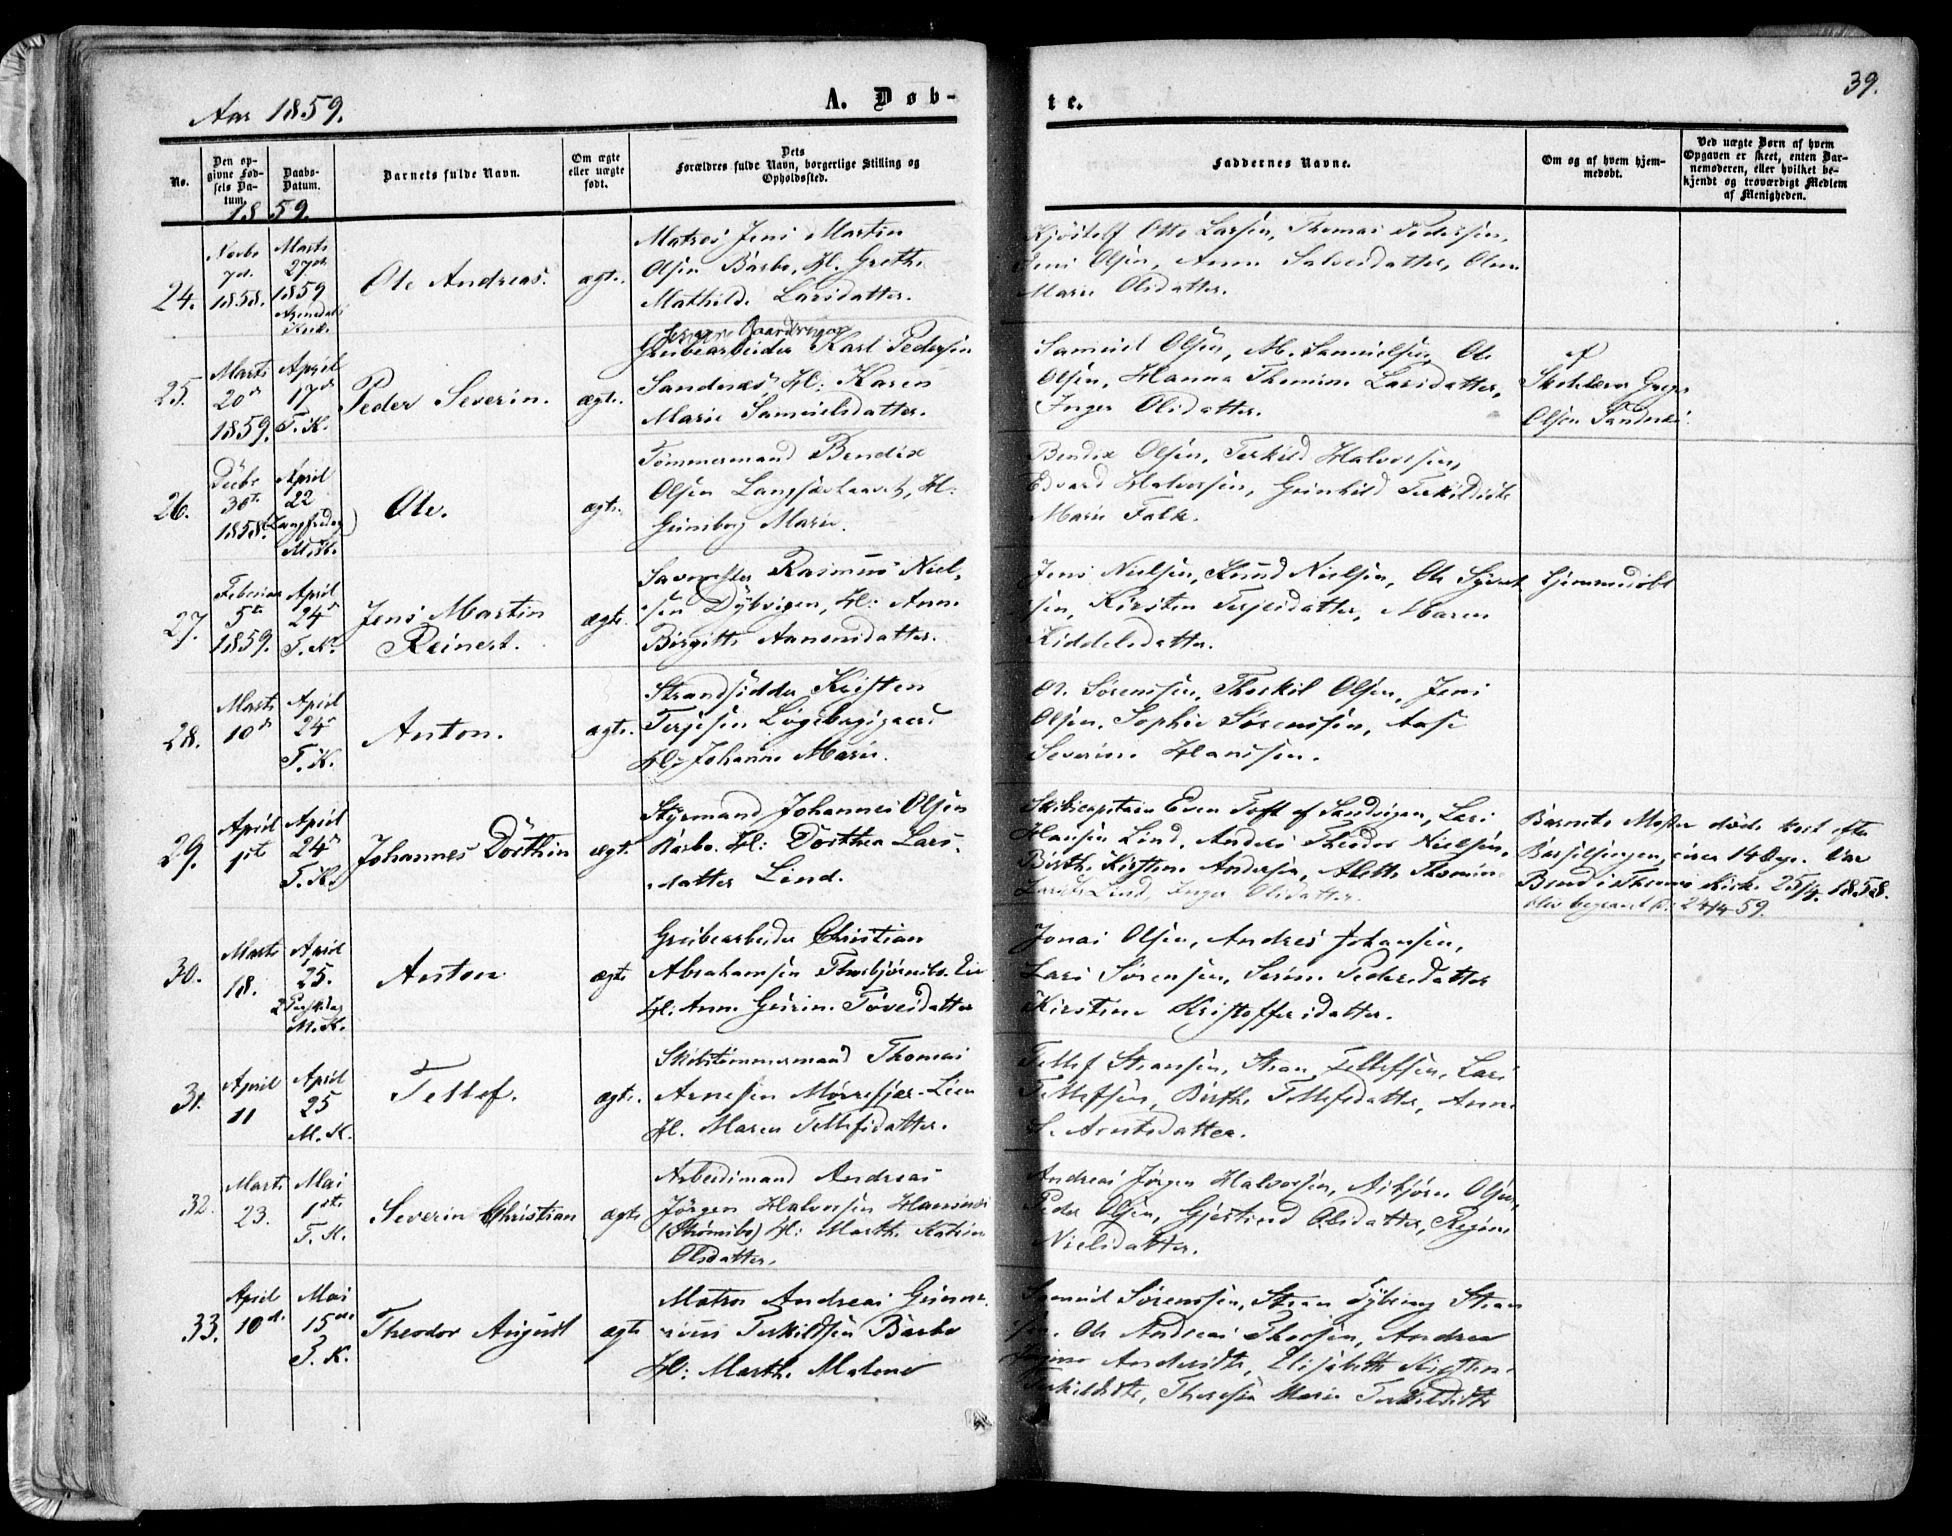 39.
Aar 1859.
A. Døb-
te.
No.
Den op-
givne Fød-
sels Da-
tum.
Daabs-
Datum.
Barnets fulde Navn.
Om ægte
eller uægte
født.
Dets
Forældres fulde Navn, borgerlige Stilling og
Opholdssted.
Faddernes Navne.
Om og af hvem hjem-
medøbt.
Ved uægte Børn af hvem
Opgaven er skeet, enten Bar-
nemoderen, eller hvilket be-
kjendt og troværdigt Medlem
af Menigheden.
1859.
24.
Novbr
7de
1858.
Marts
27de
1859
Ole Andreas.
ægte.
Matros Jens Martin
Olsen Barbo, H. Grethe
Mathilde Larsdatter.
Otto Larsen, Thomas Pedersen,
Jens Olsen, Anne Salvesdatter,
Marie Olsdatter.
25.
Marts
20de
1859.
April
17de
T. K.
Peder Severin.
ægte.
Grubearbeider Karl Pedersen
Sandnæs H: Karen
Marie Samuelsdatter.
Samuel Olsen, M. Samuelsen, Ole
Olsen, Hanna Thomine Larsdatter,
Inger Olsdatter.
af
Skolelærer
Olsen Sandnæs.
26.
Decbr
30te
1858.
April
22
(Langfredag)
M. K.
Ole.
ægte.
Tømmermand Bendix
Olsen H:
Gunborg Marie.
Bendix Olsen, Terkild Halvorsen,
Edvard Halvorsen, Gunhild
Marie Falk.
27.
Februar
5te
1859.
April
24de
T. K.
Jens Martin
Reinert.
ægte.
Rasmus Niel-
sen Dybvigen, H: Anne
Birgitte Aanonsdatter.
Jens Nielsen, Knud Nielsen, Ole
sen, Kirsten Terjesdatter, Maren
Kiddelsdatter.
hjemmedøbt
28.
Marts
10de
April
24de
T. K.
Anton.
ægte.
Strandsidder Kristen
Terjesen
H: Johanne Marie.
Ole Sørensen, Therkil Olsen, Jens
Olsen, Sophie Sørensen, Aase
Severine Hansen.
29.
April
1ste
April
24de
T. K.
Johannes Dorthin
ægte.
Styrmand Johannes Olsen
Barbo. H: Dorthea Lars-
datter Lind.
Skibscapitain Even Toft af Sandvigen, Lars
Hansen Lind, Anders Theodor Nielsen,
Birthe Kirstine Andersen, Alette Thomine
Larsdtr Lind, Inger Olsdatter.
Barnets Moder døde kort efter
Barselsengen, circa 14 Dge. Var
i Kirke 25/4 1858.
blev begravet d. 24/4 59.
30.
Marts
18.
April
25.
2 Paaskedag
M. K.
Anton
ægte
Grubearbeider Christian
Abrahamsen Thorbjørnsbo. Lien
H: Anne Gurine Tovesdatter
Jonas Olsen, Andreas Johansen,
Lars Sørensen, Serine Pedersdatter
Kirstine Kristoffersdatter.
31.
April
11
April
25
M. K.
Tellef.
ægte.
Skibstømmermand Thomas
Arnesen Morrefjær. Lien
H. Maren Tellefsdatter.
Tellef Steansen, Stean Tellefsen, Lars
Tellefsen, Birthe Tellefsdatter, Anne
S. Arntsdatter.
32.
Marts
23.
Mai
1ste
T. K.
Severin Christian
ægte
Arbeidsmand Andreas
Jørgen Halvorsen
(Strømsbo) H: Marthe Katrine
Olsdatter.
Andreas Jørgen Halvorsen, Asbjørn Olsen,
Peder Olsen, Gjertrud Olsdatter, Regine
Nielsdatter.
33.
April
10de
Mai
15de
T. K.
Theodor August
ægte
Matros Andreas Gunne-
rius Terkildsen Barbo
H: Marthe Malene
Samuel Sørensen, Stean Stean
sen. Ole Andreas Thorsen, Andrea
Andersdtr, Elisabeth Kirstine
Terkildsdtr, Theresia Marie Terkildsdtr